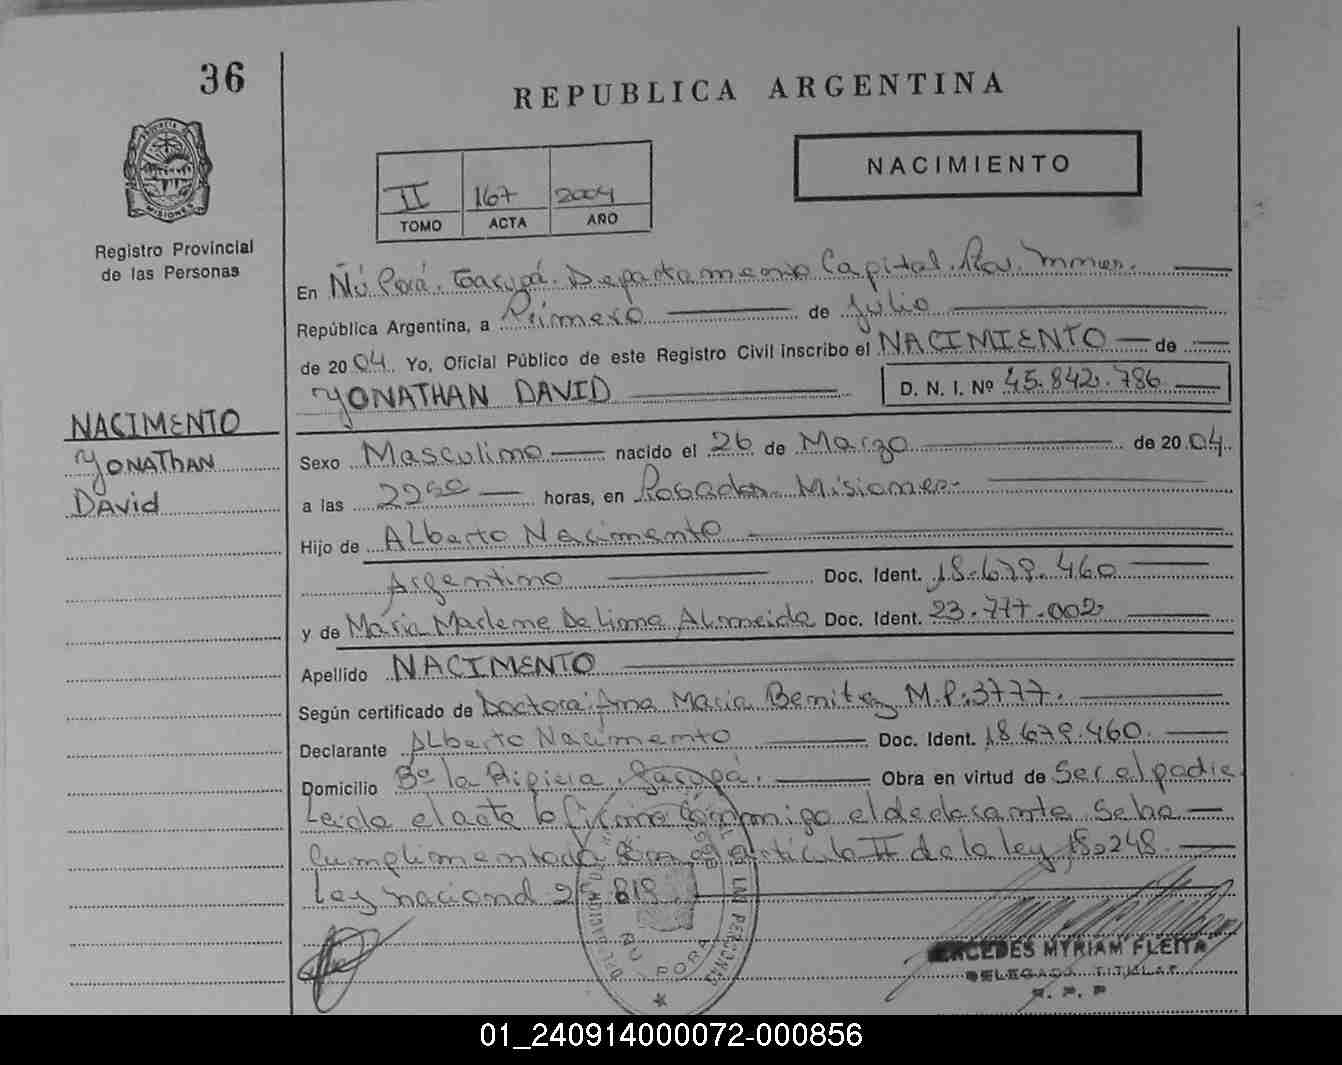 36
REPUBLICA ARGENTINA
PROVINCIA DE
MISIONES
Registro Provincial
de las Personas
II 167 2004
TOMO ACTA AÑO
NACIMIENTO
En Ñú Porá. Garupá. Departamento Capital. Prov. Mnes.
República Argentina, a Primero de Julio
de 2004. Yo, Oficial Público de este Registro Civil inscribo el NACIMIENTO de
YONATHAN DAVID D. N. I. Nº 45.842.786
NACIMENTO
YONATHAN
DAVid
Sexo Masculino nacido el 26 de Marzo de 2004.
a las horas, en Posadas. Misiones.
Hijo de Alberto Nacimento
Argentino Doc. Ident. 18.679.460
y de Maria Marlene De Lima Almeida Doc. Ident. 23.777.002
Apellido NACIMENTO
Según certificado de Doctora: Ana Maria Benitez M.P:3777.
Declarante Alberto Nacimento Doc. Ident. 18.679.460.
Domicilio Bº la Garupá. Obra en virtud de Ser el padre
Leida el acta la firma conmigo el declarante. Se ha
Cumplimentado con el artículo II de la ley 18.248.
Ley nacional 25.819.
LAS PERSONAS
ÑU PORA
MERCEDES MYRIAM FLEITA
DELEGADA TITULAR
R. P. P
01_240914000072-000856